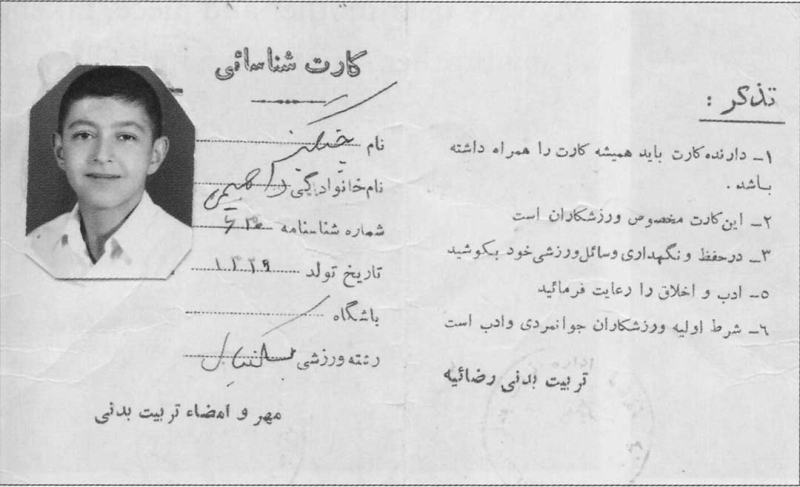 تذکر :
۱ـ دارنده کارت باید همیشه کارت را همراه داشته
باشد .
۲ـ این کارت مخصوص ورزشکاران است
۳ـ درحفظ و نگهداری وسائل ورزشی خود بکوشید
۵ـ ادب و اخلاق را رعایت فرمائید
۶ـ شرط اولیه ورزشکاران جوانمردی وادب است
تربیت بدنی رضائیه
کارت شناسائی
نام
نام خانوادگی
شماره شناسنامه
تاریخ تولد ۱۳۲۹
باشگاه
رشته ورزشی بسکتبال
مهر و امضاء تربیت بدنی